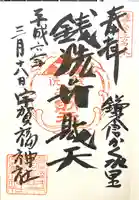 奉拝
鎌倉かくれ里
銭洗弁財天
平成六年
三月十八日
宇賀福神社